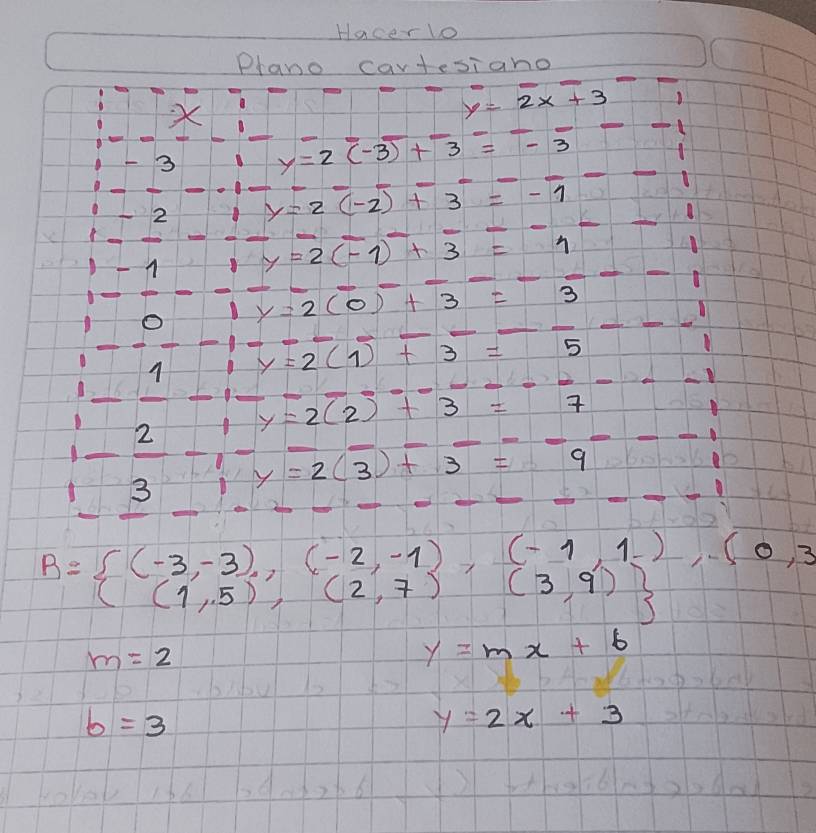 Hacerlo
Plano cartesiano
x y = 2x + 3
-3 y = 2 (-3) + 3 = -3
-2 y = 2 (-2) + 3 = -1
-1 y = 2 (-1) + 3 = 1
0 y = 2 (0) + 3 = 3
1 y = 2 (1) + 3 = 5
2 y = 2 (2) + 3 = 7
3 y = 2 (3) + 3 = 9
R = { (-3,-3), (-2,-1), (-1,1), (0,3
(1,5), (2,7) (3,9) }
m = 2 y = mx + b
b = 3 y = 2x + 3